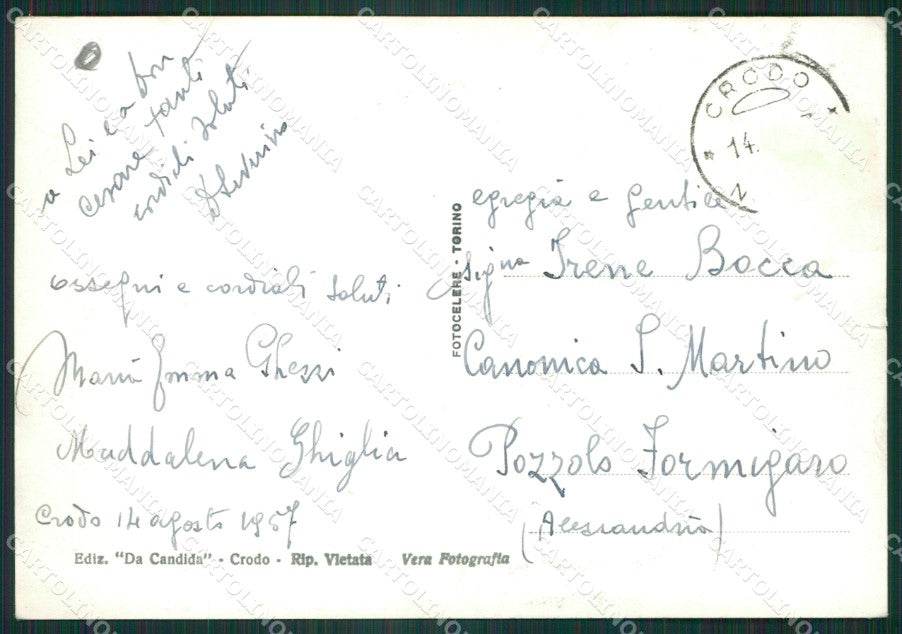 a Lei e a don
cesare tanti
cordiali saluti
ossequi e cordiali saluti
Maria Emma Ghezzi
Maddalena Ghiglia
Crodo 14 agosto 1957
Ediz. "Da Candida" - Crodo - Rip. Vietata Vera Fotografia
FOTOCELERE - TORINO
CRODO
14.
egregia e gentile
signa Irene Bocca
Canonica S. Martino
Pozzolo Formigaro
(Alessandria)
CARTOLINOMANIA